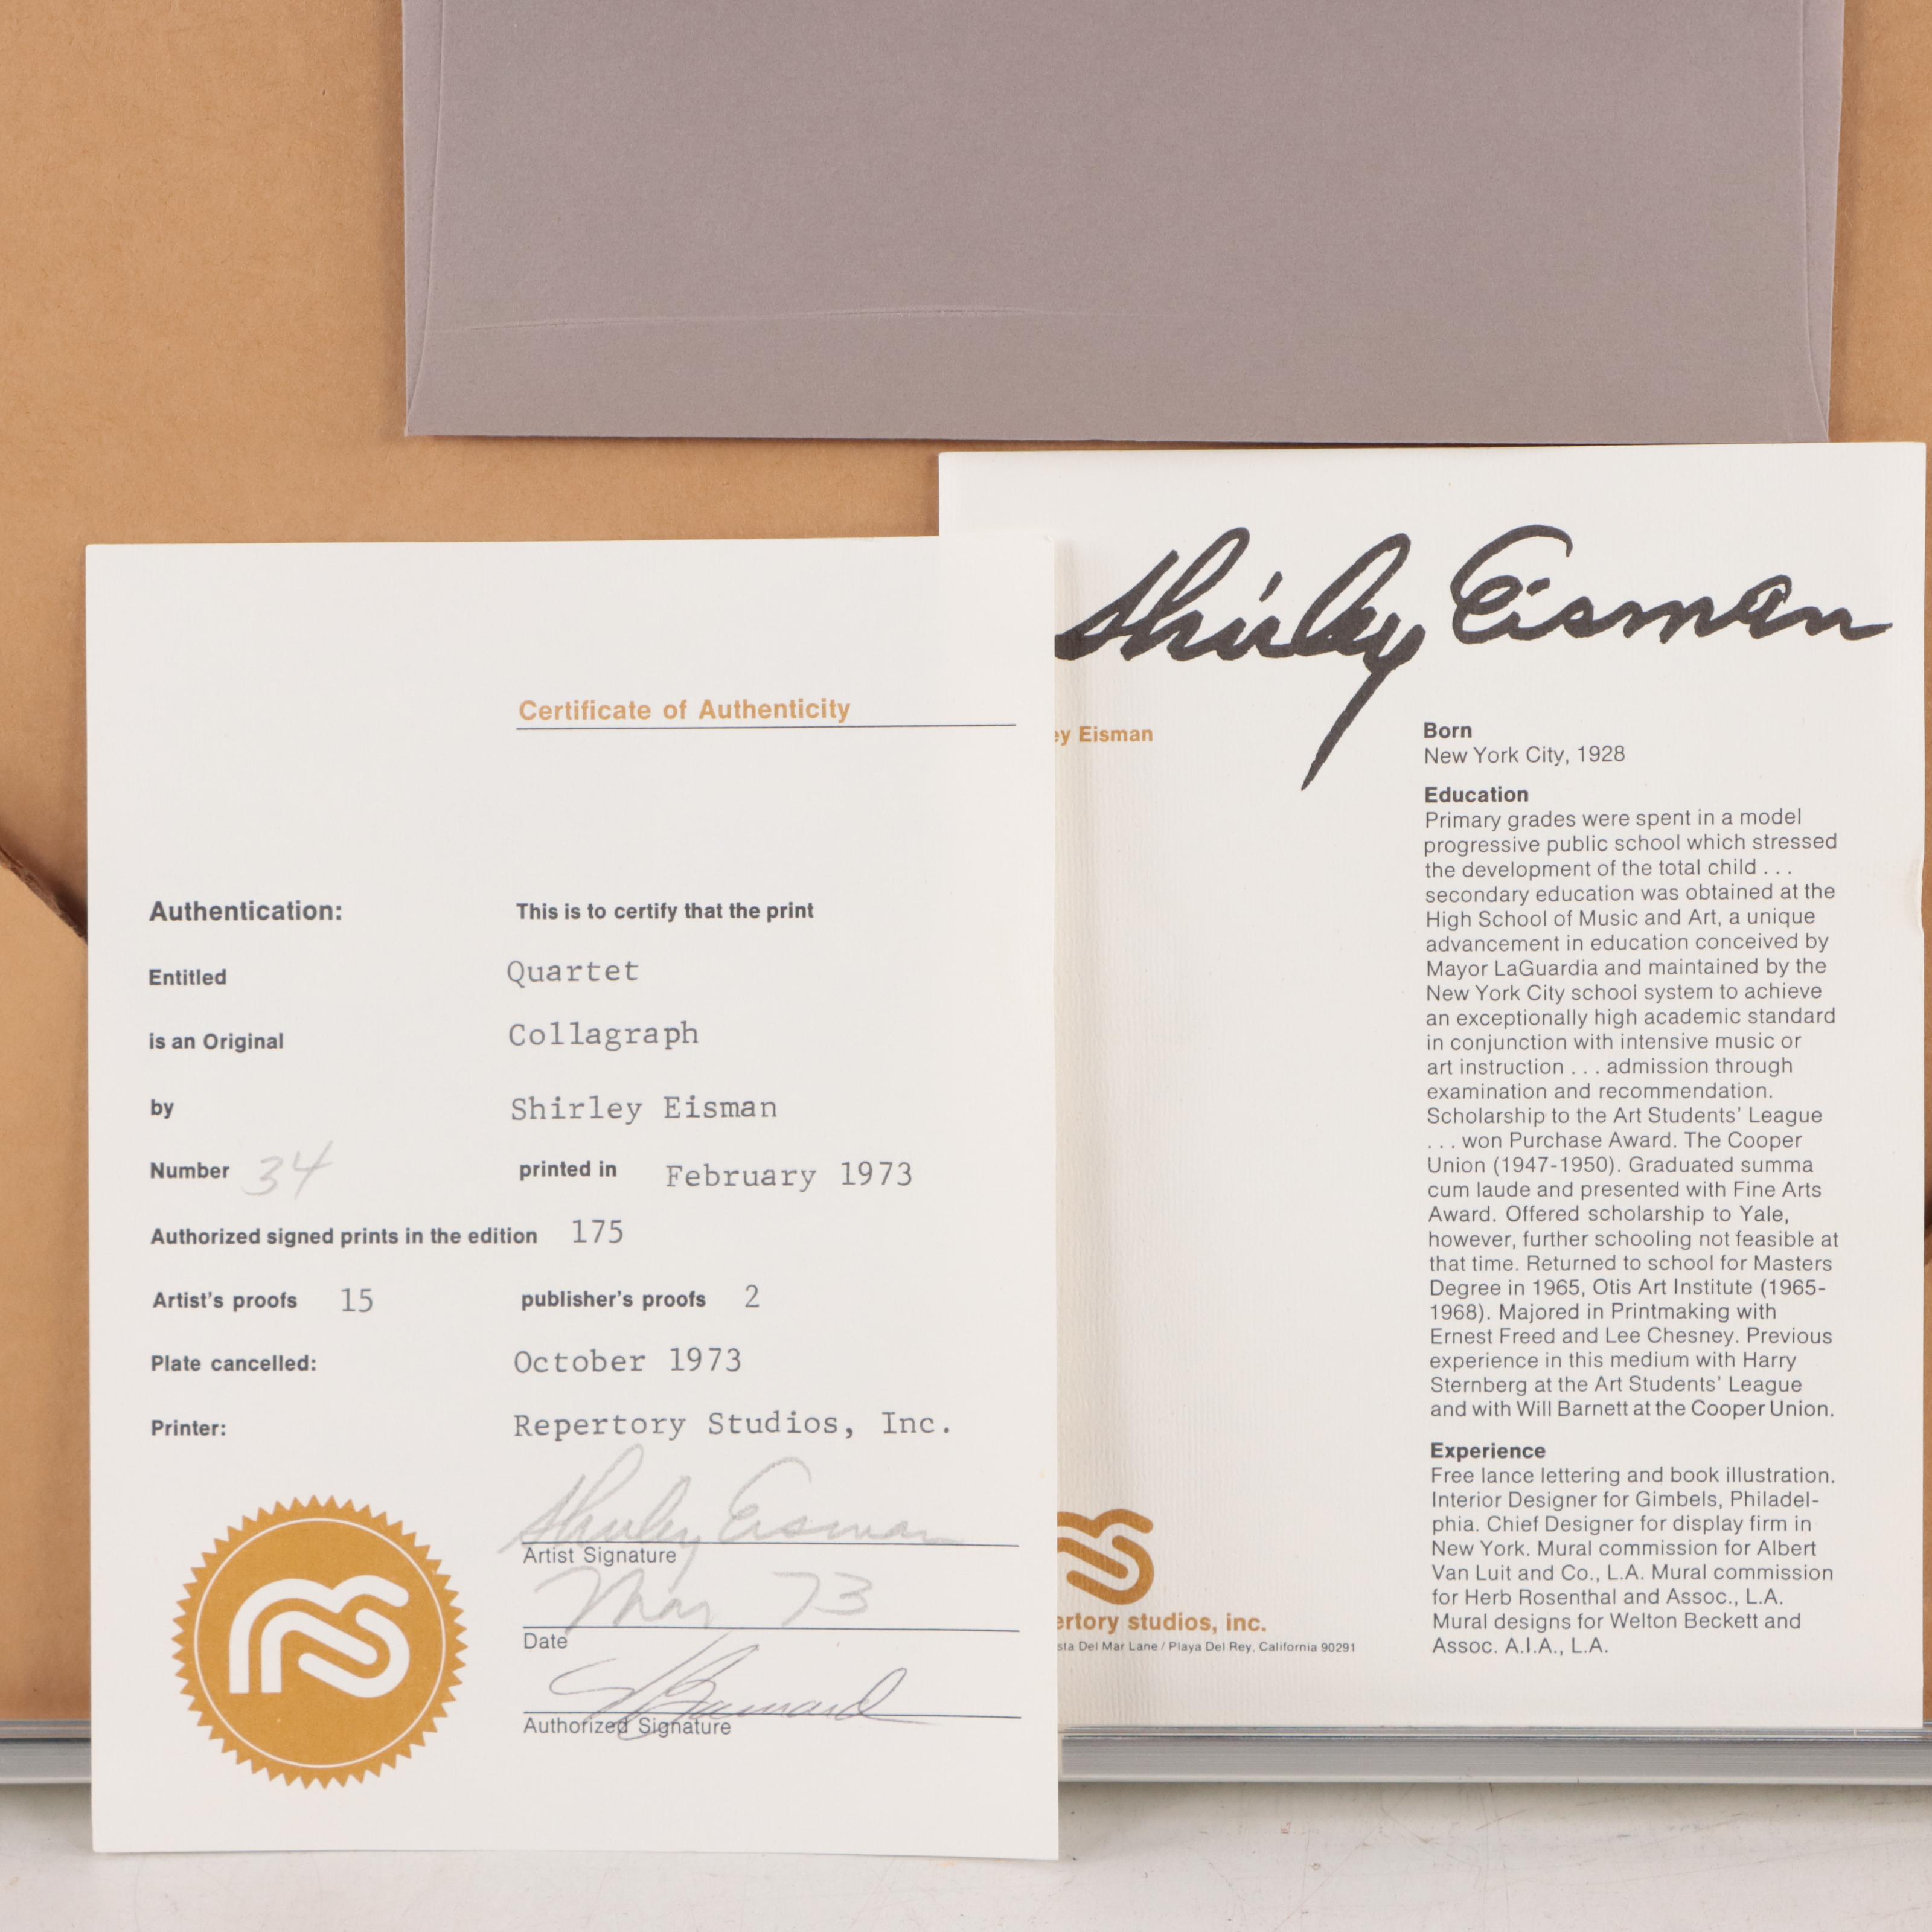 Certificate of Authenticity
Authentication: This is to certify that the print
Entitled Quartet
is an Original Collagraph
by Shirley Eisman
Number 34 printed in February 1973
Authorized signed prints in the edition 175
Artist's proofs 15 publisher's proofs 2
Plate cancelled: October 1973
Printer: Repertory Studios, Inc.
Shirley Eisman
Artist Signature
May 73
Date
Authorized Signature
Shirley Eisman
ey Eisman
Born
New York City, 1928
Education
Primary grades were spent in a model
progressive public school which stressed
the development of the total child . . .
secondary education was obtained at the
High School of Music and Art, a unique
advancement in education conceived by
Mayor LaGuardia and maintained by the
New York City school system to achieve
an exceptionally high academic standard
in conjunction with intensive music or
art instruction . . . admission through
examination and recommendation.
Scholarship to the Art Students' League
. . . won Purchase Award. The Cooper
Union (1947-1950). Graduated summa
cum laude and presented with Fine Arts
Award. Offered scholarship to Yale,
however, further schooling not feasible at
that time. Returned to school for Masters
Degree in 1965, Otis Art Institute (1965-
1968). Majored in Printmaking with
Ernest Freed and Lee Chesney. Previous
experience in this medium with Harry
Sternberg at the Art Students' League
and with Will Barnett at the Cooper Union.
Experience
Free lance lettering and book illustration.
Interior Designer for Gimbels, Philadel-
phia. Chief Designer for display firm in
New York. Mural commission for Albert
Van Luit and Co., L.A. Mural commission
for Herb Rosenthal and Assoc., L.A.
Mural designs for Welton Beckett and
Assoc. A.I.A., L.A.
ertory studios, inc.
sta Del Mar Lane / Playa Del Rey, California 90291